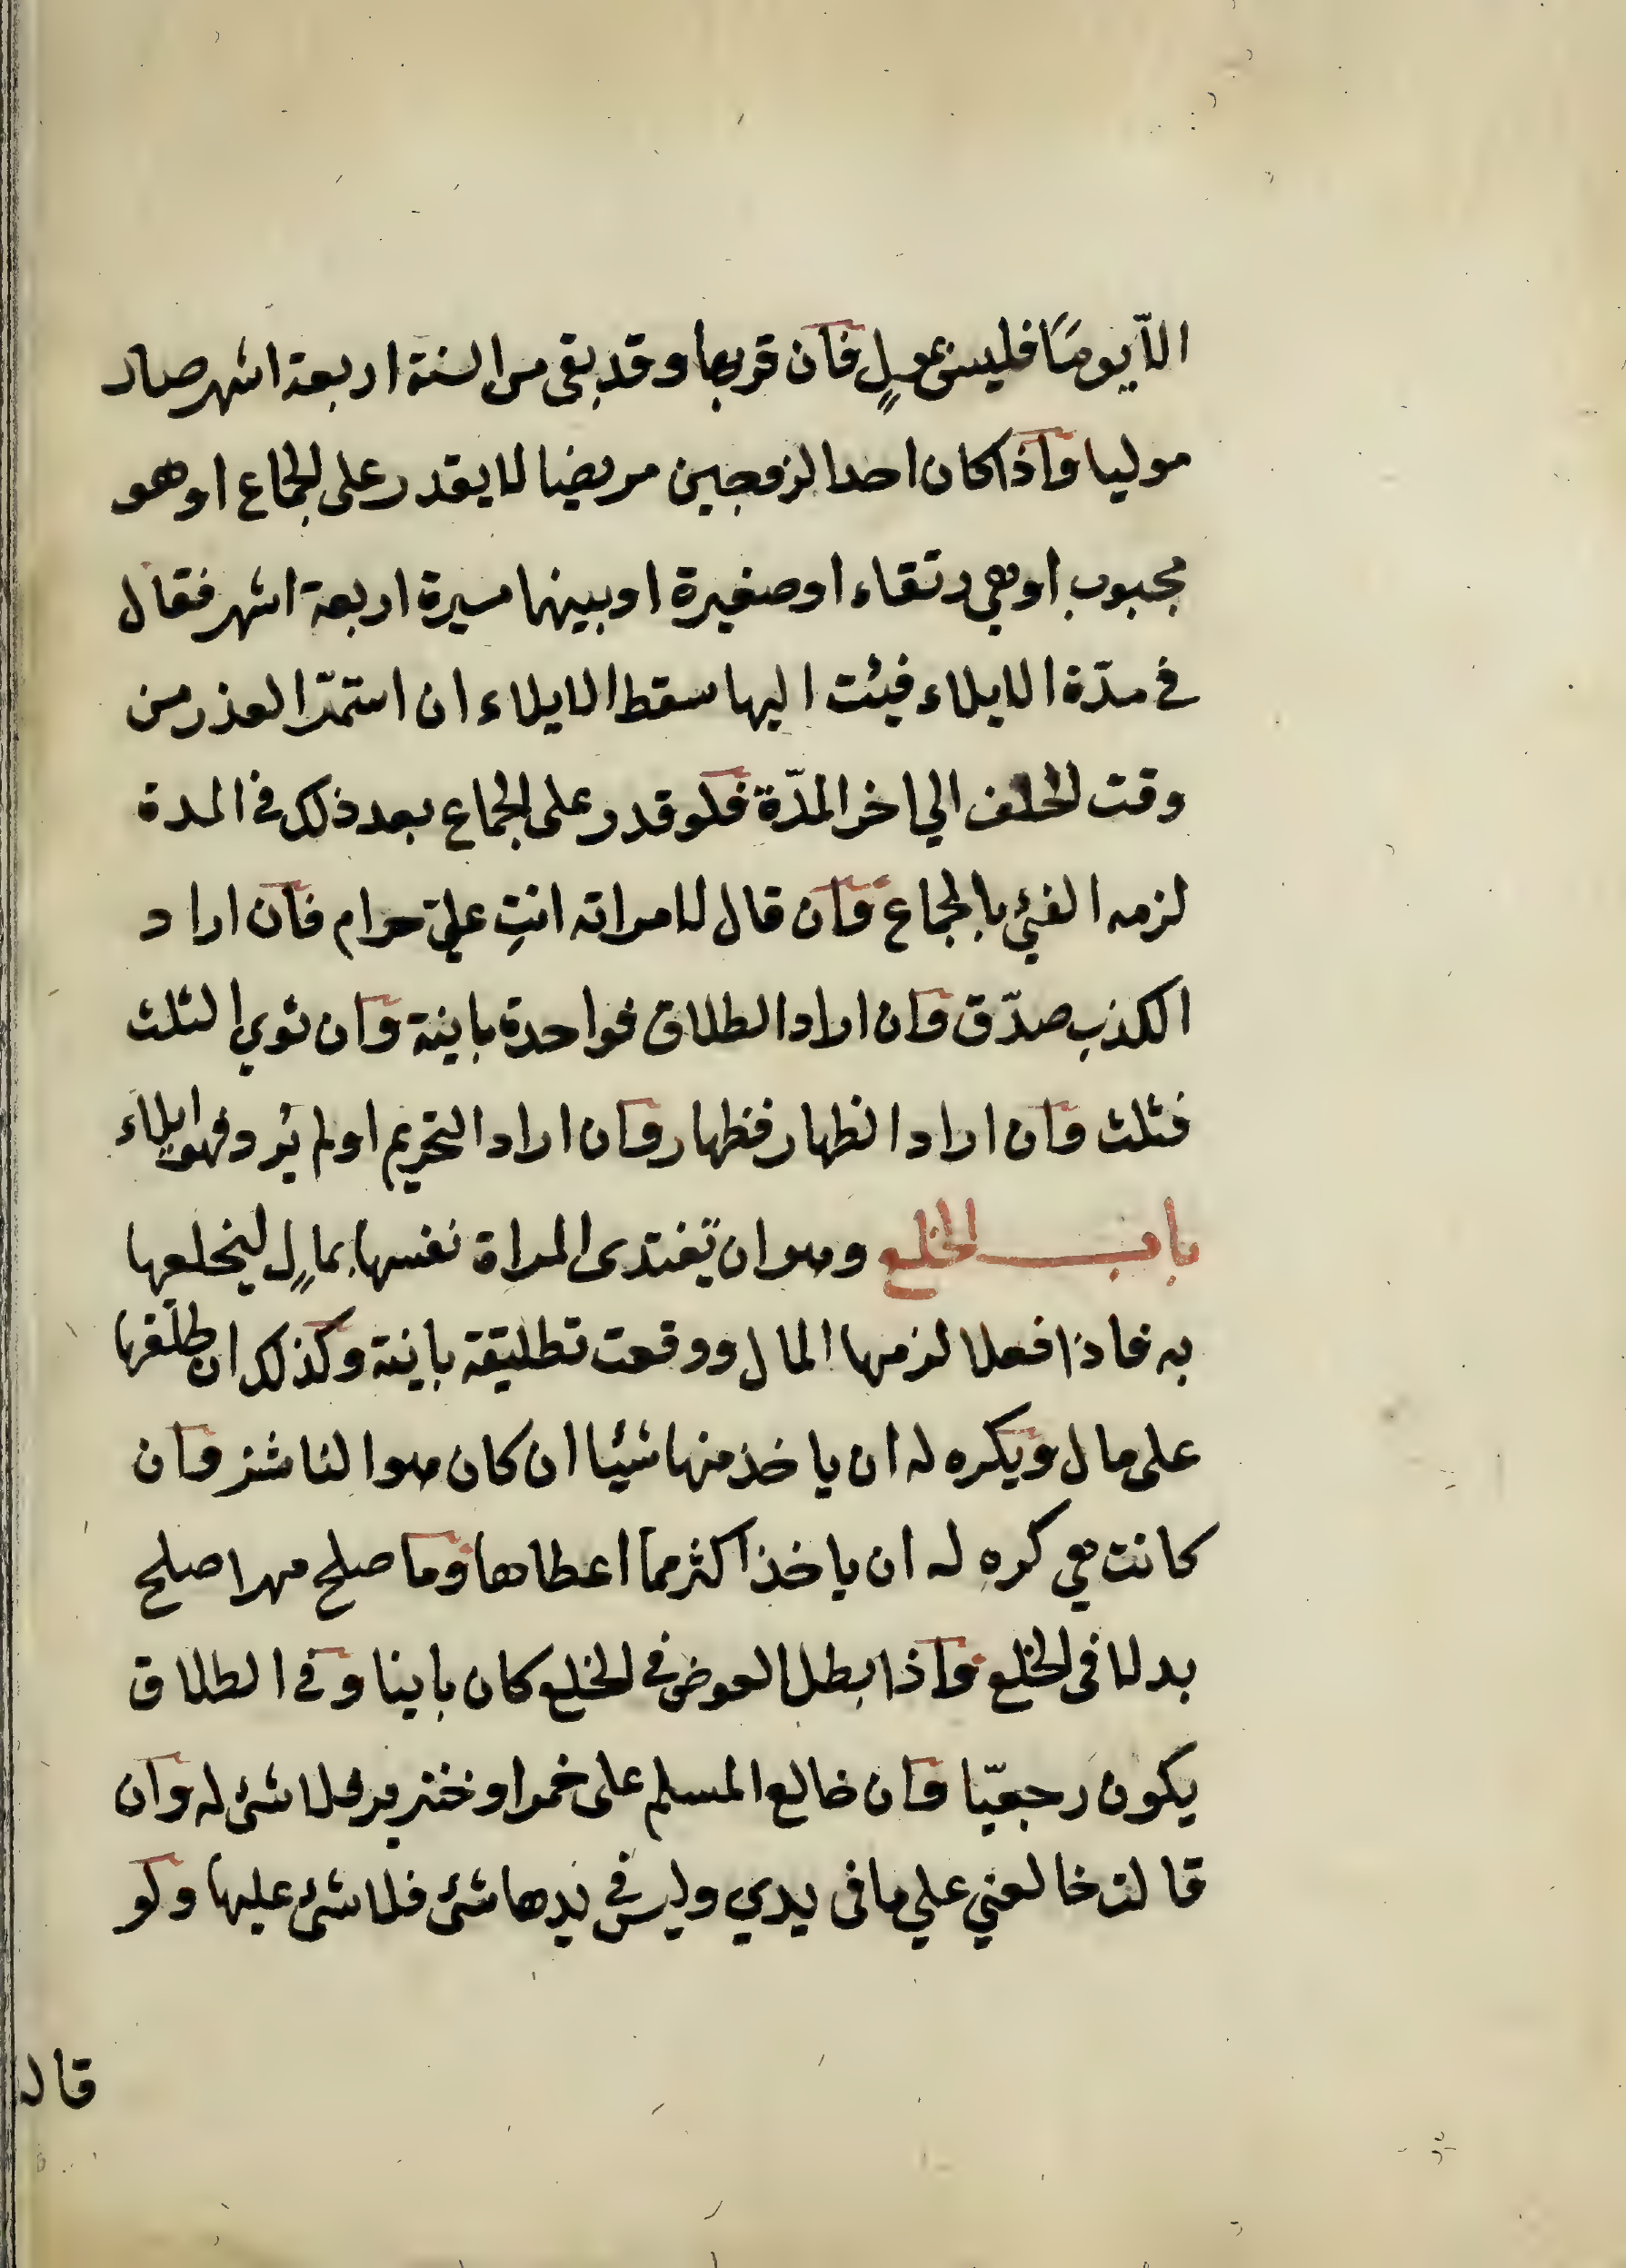 الّا يومًا فليس بمولٍ فان قربها وقد بقى من السنة اربعة اشهر صار
موليا واذا كان احد الزوجين مريضا لا يقدر على الجماع او هو
مجبوب او هي رتقاء او صغيرة او بينهما مسيرة اربعة اشهر فقال
في مدّة الايلاء فيئت اليها سقط الايلاء ان استمرّ العذر من
وقت الحلف الي اخر المدّة فلو قدر على الجماع بعد ذلك في المدة
لزمه الفئي بالجماع وان قال لامراته انتِ عليّ حرام فان اراد
الكذب صدّق وان اراد الطلاق فواحدة باينة وان نوي الثلث
فثلث وان اراد الظهار فظهار وان اراد التحريم او لم يُرد فهو ايلاء
باب الخلع وهو ان تفتدى المراة نفسها بمالٍ ليخلعها
به فاذا فعلا لزمها المال ووقعت تطليقة باينة وكذلك ان طلّقها
على مال ويكره له ان ياخذ منها شيئا ان كان هو الناشز وان
كانت هي كره له ان ياخذ اكثر مما اعطاها وما صلح مهرا صلح
بدلا فى الخلع واذا بطل العوض في الخلع كان باينا وفي الطلاق
يكون رجعيّا وان خالع المسلم على خمر او خنزير فلا شئ له وان
قالت خالعني علي ما فى يدي وليس في يدها شئ فلا شئ عليها ولو
قال